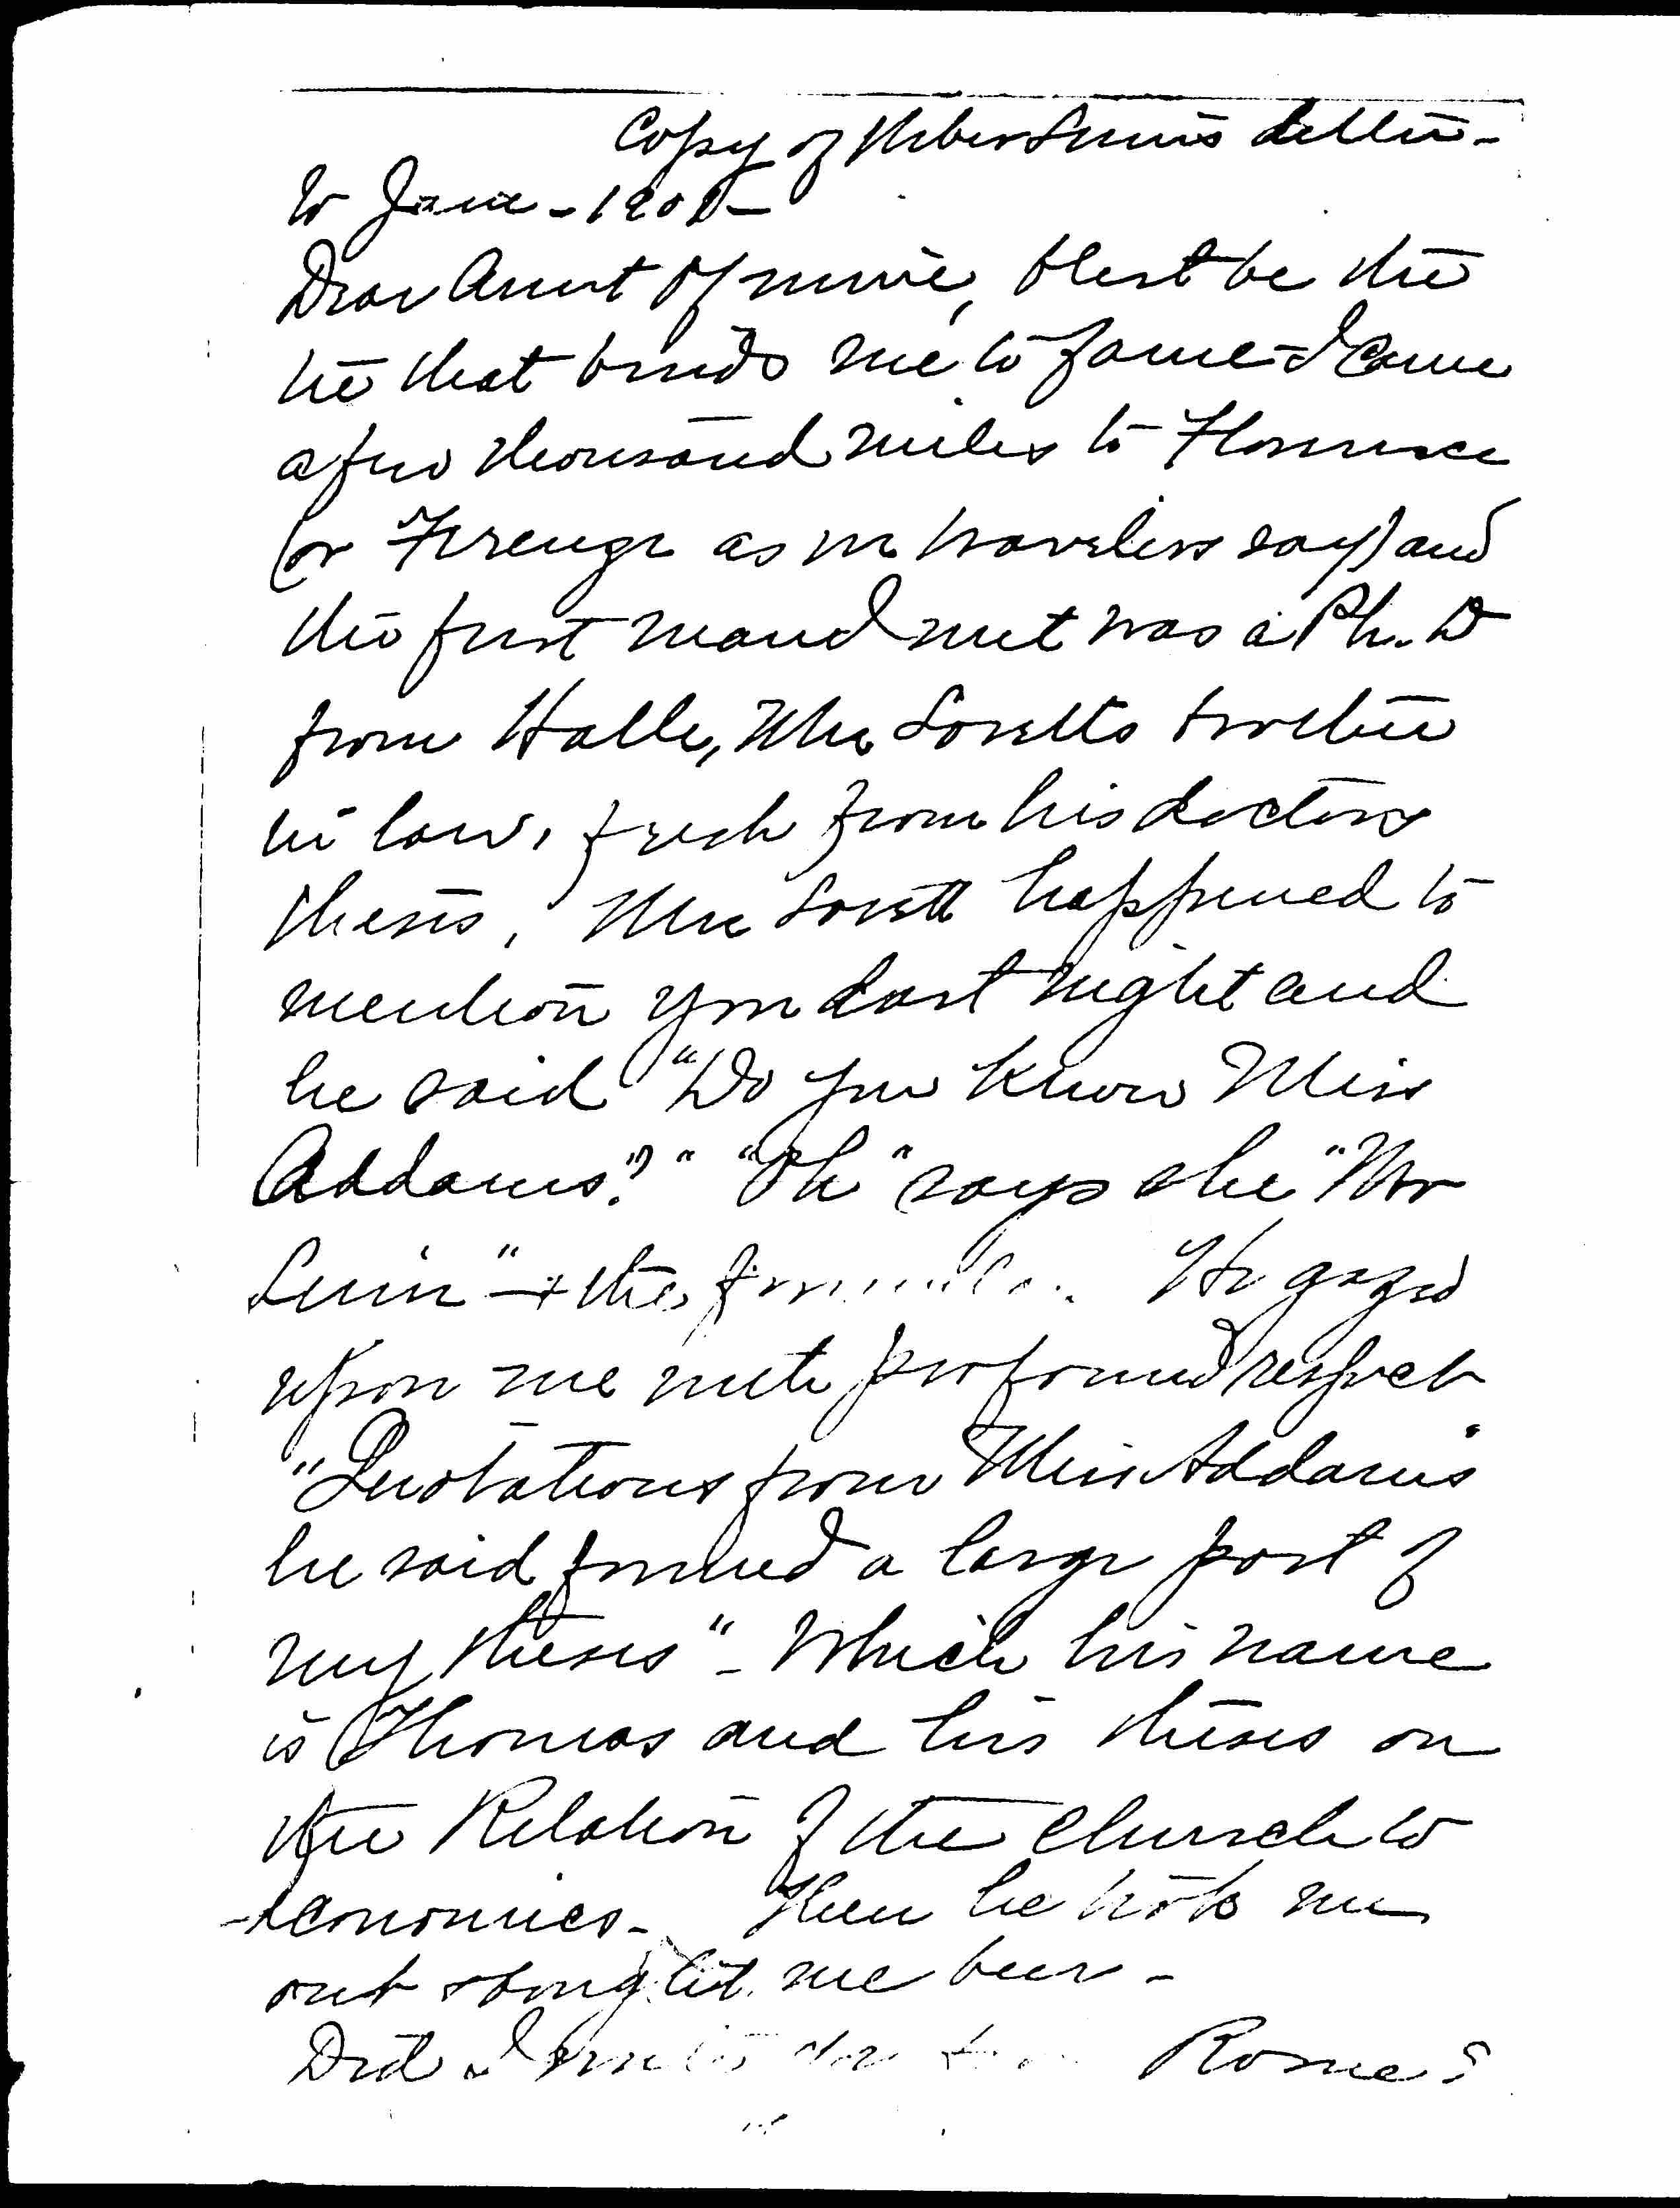 Copy of Weber Linn's letter -
to Jane - 1901 -
Dear Aunt of mine, blest be the
tie that binds me to fame - I came
a few thousand miles to Florence
(or Firenze as we travelers say) and
the first man I met was a Ph. D
from Halle, Mrs Lovetts brother
in law, fresh from his doctors
thesis. Mrs Lovett happened to
mention you last night and
he said "Do you know Miss
Addams?" "Oh" says she "Mr
Linn" - + the formula. He gazed
upon me with profound respect
"Quotations from Miss Addams"
he said formed a large part of
my thesis" - Which his name
is Thomas and his thesis on
the Relation of the church to
economics - Then he took me
out + bought me beer -
Did I write you from Rome?